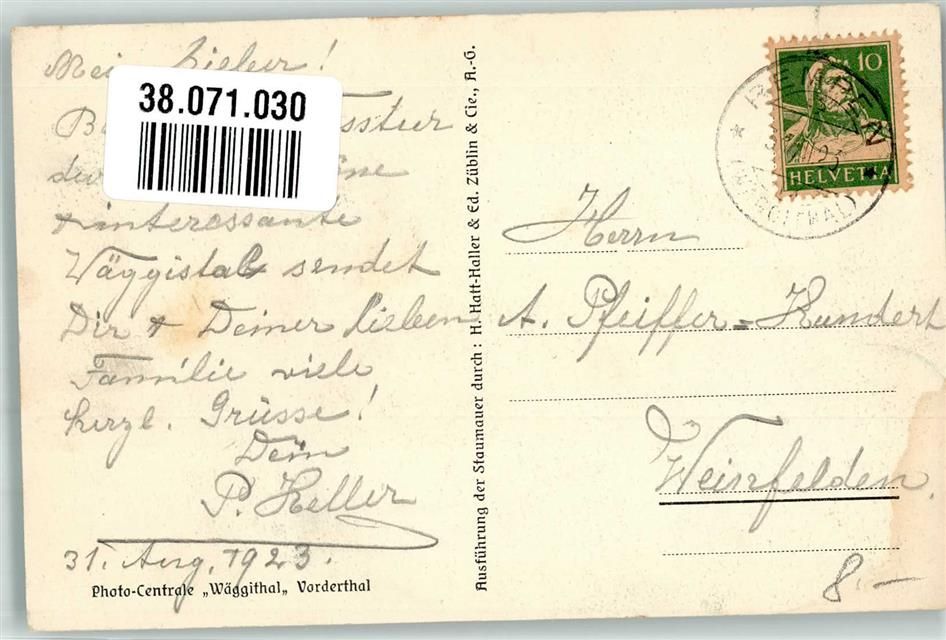 Mein Lieber!
38.071.030
sstur
+ interessante
Wäggistal sendet
Dir + Deiner lieben
Familie viele
herzl. Grüsse!
Dein
P. Heller
31. Aug. 1923.
Photo-Centrale „Wäggithal„ Vorderthal
Ausführung der Staumauer durch: H. Hatt-Haller & Ed. Züblin & Cie., A.-G.
10
HELVETIA
REMPEN
(WÄGGITHAL)
Herrn
A. Pfeiffer-Kundert
Weinfelden.
8.–